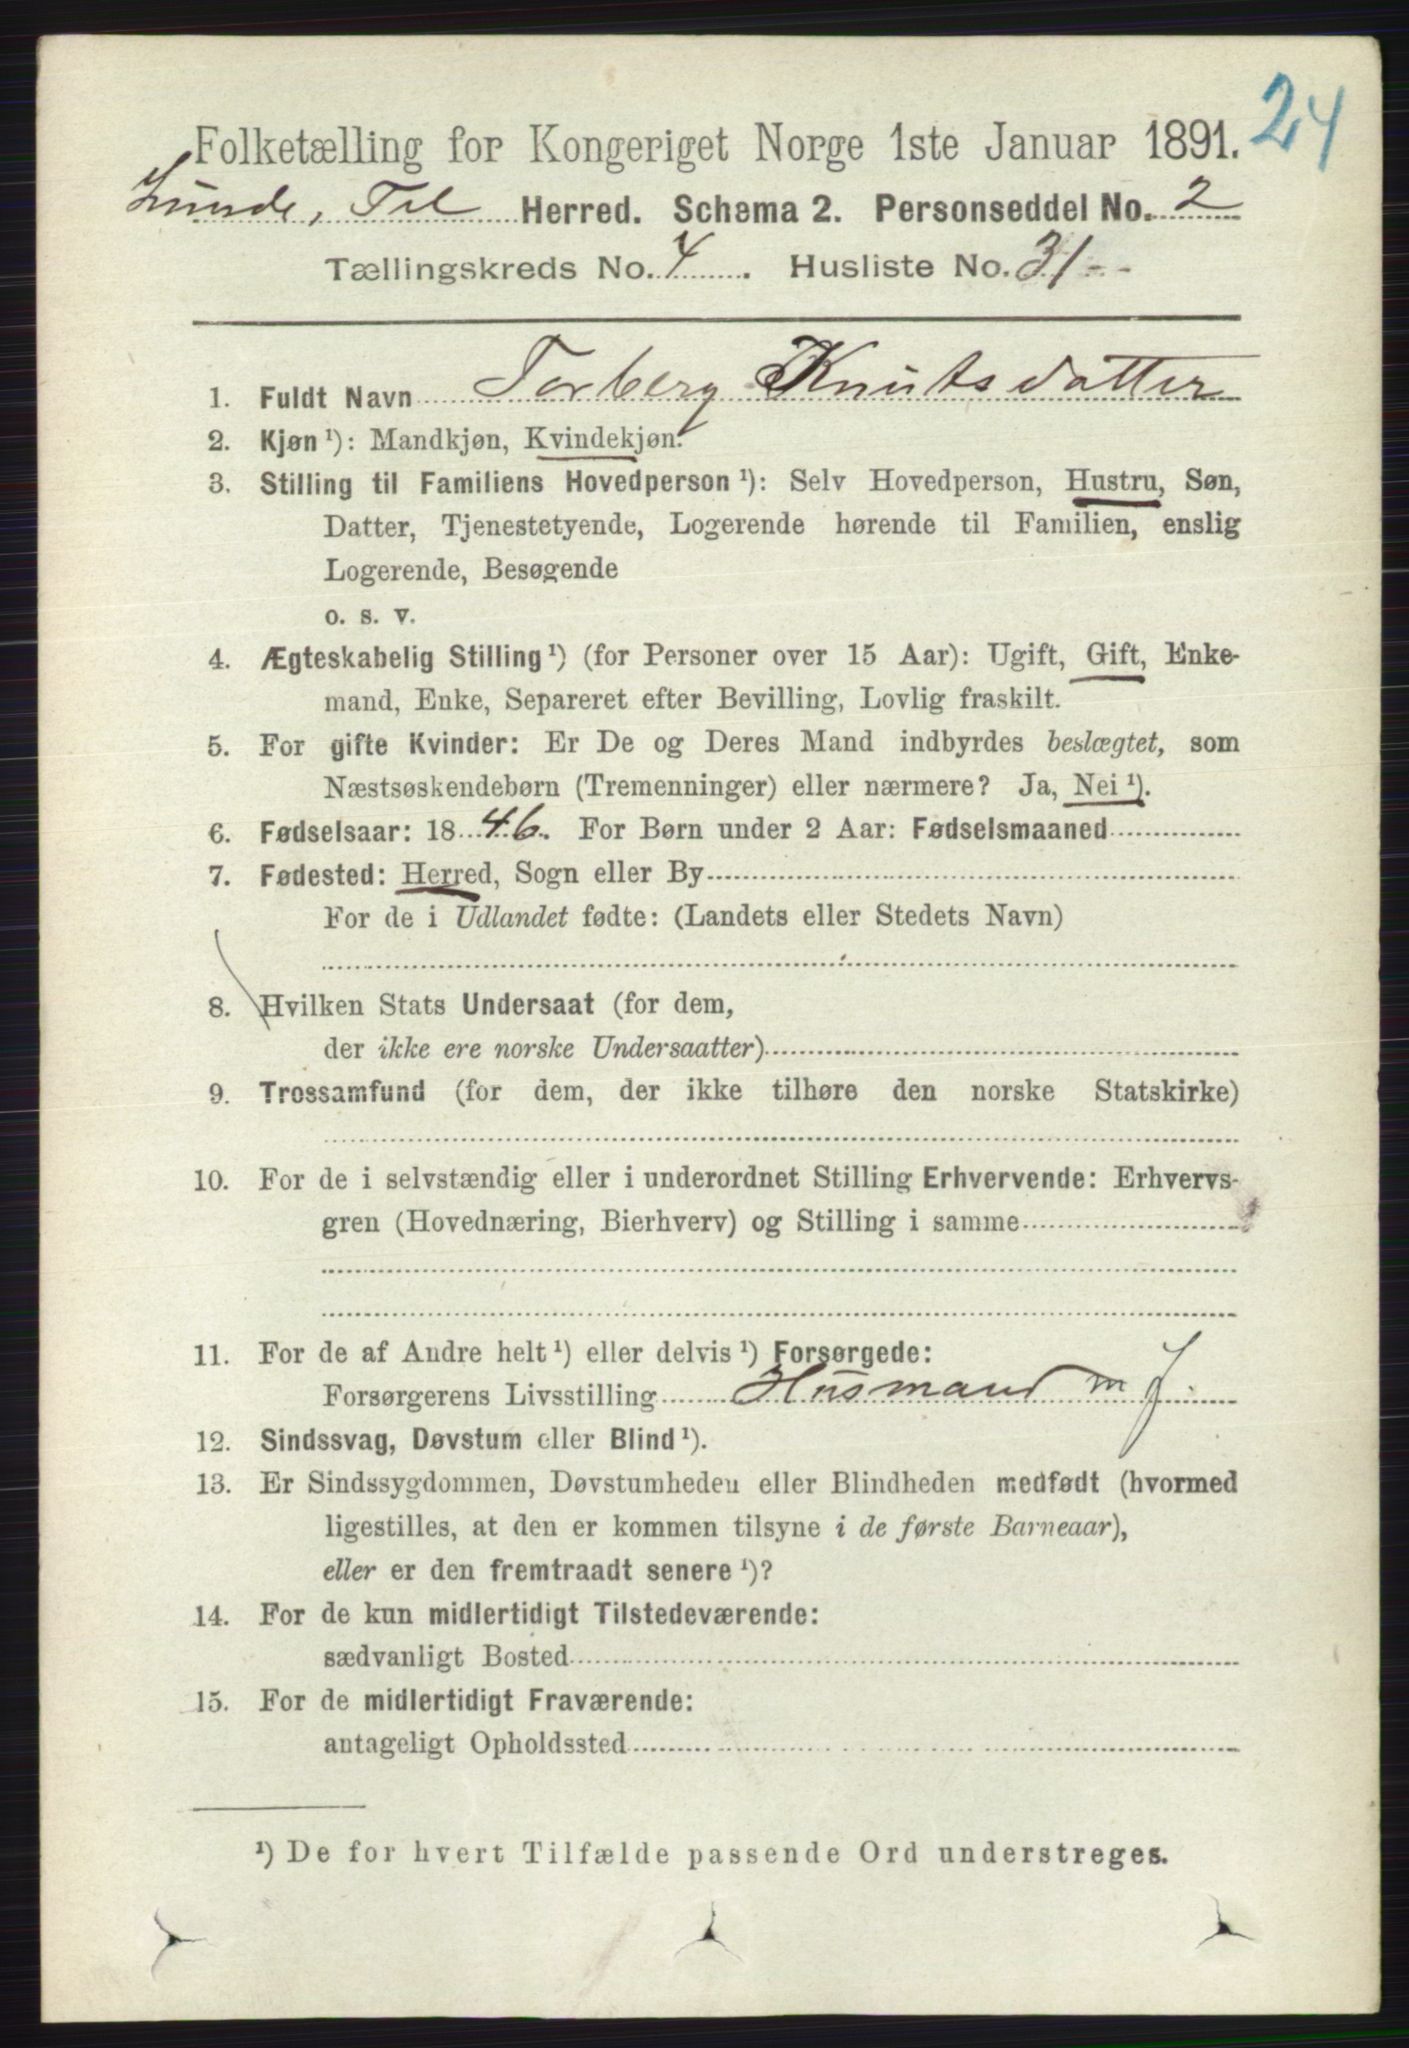 24
Folketælling for Kongeriget Norge 1ste Januar 1891.
Lunde, Tel Herred. Schema 2. Personseddel No. 2
Tællingskreds No. 4. Husliste No. 31
1. Fuldt Navn Torberg Knutsdatter
2. Kjøn ¹): Mandkjøn, Kvindekjøn.
3. Stilling til Familiens Hovedperson ¹): Selv Hovedperson, Hustru, Søn,
Datter, Tjenestetyende, Logerende hørende til Familien, enslig
Logerende, Besøgende
o. s. v.
4. Ægteskabelig Stilling ¹) (for Personer over 15 Aar): Ugift, Gift, Enke-
mand, Enke, Separeret efter Bevilling, Lovlig fraskilt.
5. For gifte Kvinder: Er De og Deres Mand indbyrdes beslægtet, som
Næstsøskendebørn (Tremenninger) eller nærmere? Ja, Nei ¹).
6. Fødselsaar: 1846. For Børn under 2 Aar: Fødselsmaaned
7. Fødested: Herred, Sogn eller By
For de i Udlandet fødte: (Landets eller Stedets Navn)
8. Hvilken Stats Undersaat (for dem,
der ikke ere norske Undersaatter)
9. Trossamfund (for dem, der ikke tilhøre den norske Statskirke)
10. For de i selvstændig eller i underordnet Stilling Erhvervende: Erhvervs-
gren (Hovednæring, Bierhverv) og Stilling i samme
11. For de af Andre helt ¹) eller delvis ¹) Forsørgede:
Forsørgerens Livsstilling Husmand m J.
12. Sindssvag, Døvstum eller Blind ¹).
13. Er Sindssygdommen, Døvstumheden eller Blindheden medfødt (hvormed
ligestilles, at den er kommen tilsyne i de første Barneaar),
eller er den fremtraadt senere ¹)?
14. For de kun midlertidigt Tilstedeværende:
sædvanligt Bosted
15. For de midlertidigt Fraværende:
antageligt Opholdssted
¹) De for hvert Tilfælde passende Ord understreges.